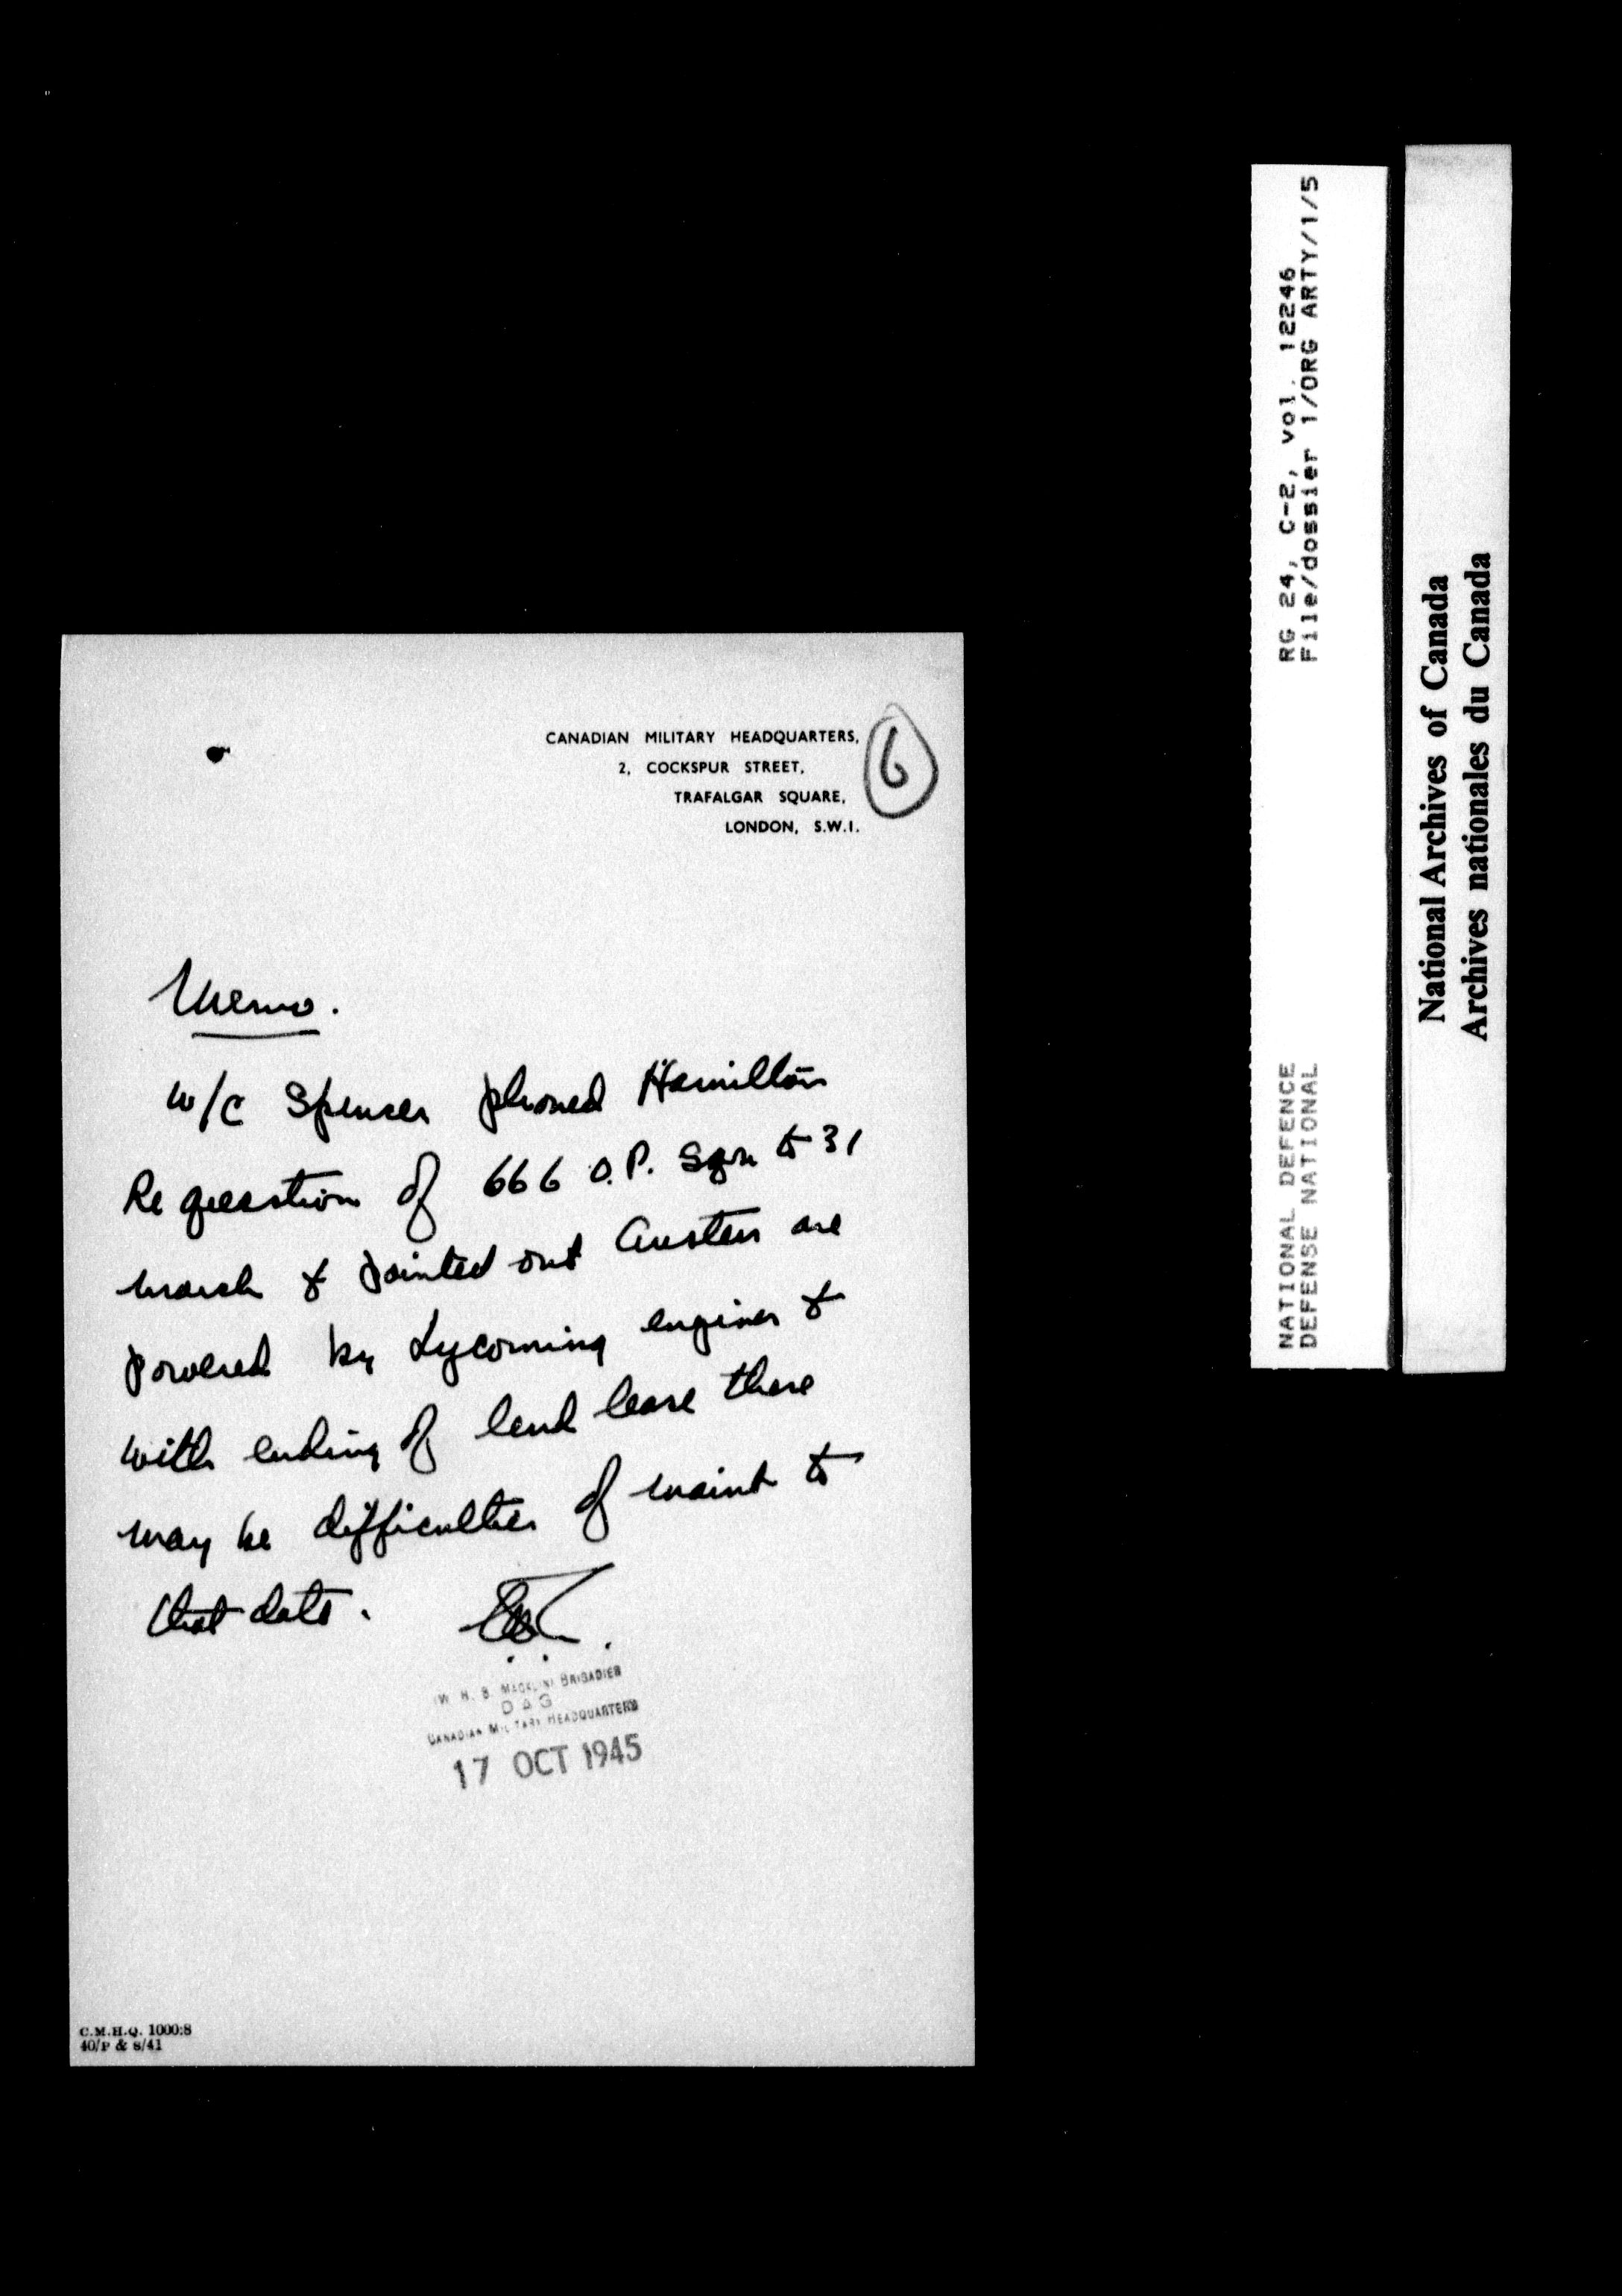 CANADIAN MILITARY HEADQUARTERS,
2, COCKSPUR STREET,
TRAFALGAR SQUARE,
LONDON, S.W.1.
6
Memo.
W/C Spencer phoned Hamilton
Re question of 666 O.P. Sqn to 31
march & pointed out Austers are
powered by Lycoming engines &
with ending of lend lease there
may be difficulties of maint to
that date.
(W. H. S. MACKLIN) BRIGADIER
D A G
CANADIAN MILITARY HEADQUARTERS
17 OCT 1945
C.M.H.Q. 1000:8
40/P & S/41
RG 24, C-2, vol. 12246
File/dossier 1/ORG ARTY/1/5
NATIONAL DEFENCE
DEFENSE NATIONAL
National Archives of Canada
Archives nationales du Canada